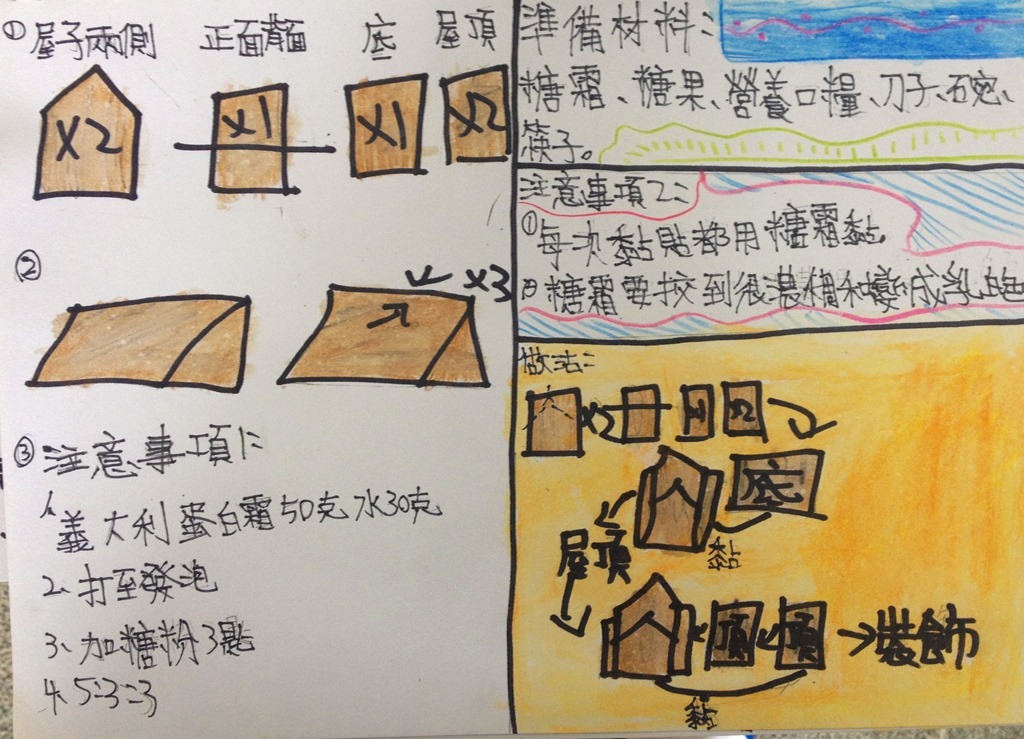 ① 屋子兩側 正面背面 底 屋頂
X2 X1 X1 X2
②
X3
③ 注意事項1:
1、義大利蛋白霜50克水30克
2、打至發泡
3、加糖粉3點
4、5:3:3
準備材料:
糖霜、糖果、營養口糧、刀子、碗、
筷子。
注意事項2:
①每次黏貼都用糖霜黏。
②糖霜要攪到很濃稠和變成乳白
做法:
X2 X1 X2
底
屋頂
黏
頂 頂 裝飾
黏